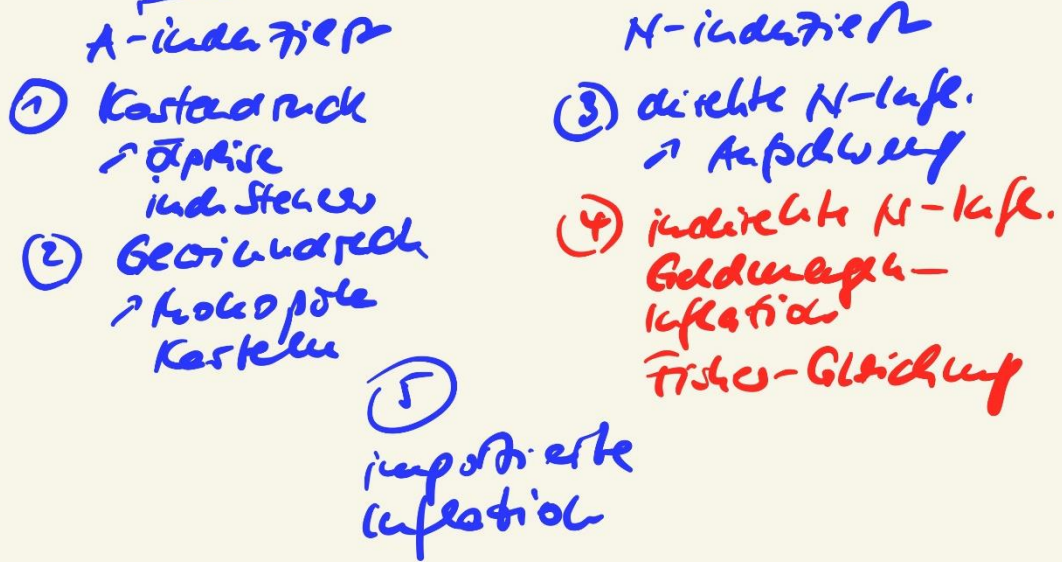 A-induziert
① Kostendruck
↗ Ölpreise
ind. Steuern
② Gewinndruck
↗ Monopole
Kartelle
N-induziert
③ direkte N-Infl.
↗ Aufschwung
④ indirekte N-Infl.
Geldmengen-
inflation
Fisher-Gleichung
⑤
importierte
Inflation